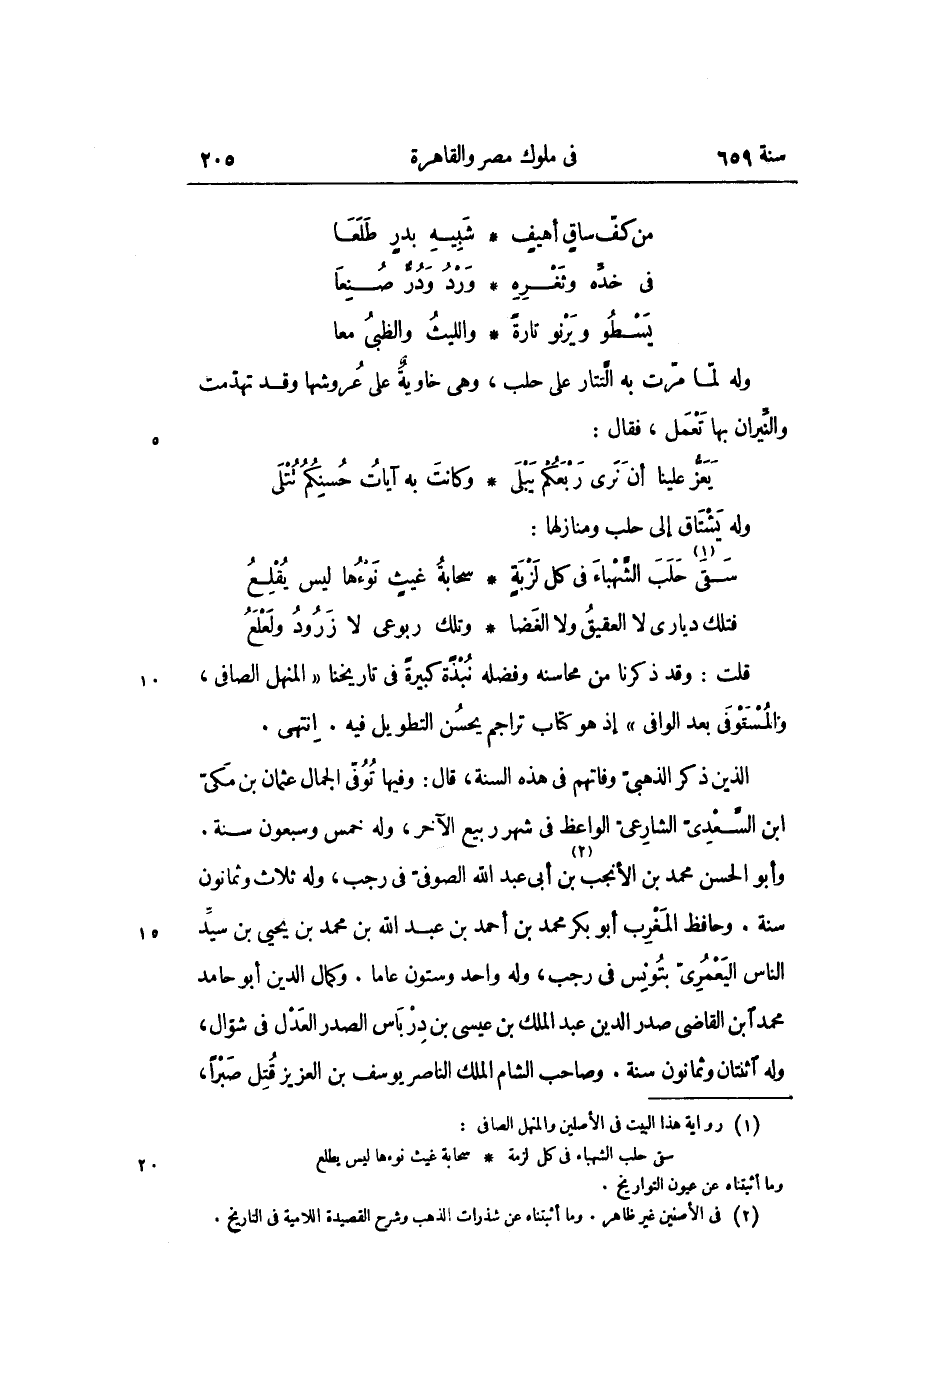 سنة ٦٥٩ فى ملوك مصر والقاهرة ٢٠٥
من كفّ ساقٍ أهيفٍ * شَبِيــهِ بدرٍ طَلَعَــا
فى خدّه وثَغْــرِهِ * وَرْدُ ودُرٌّ صُـنِعاَ
يَسْـطُو ويَرْنو تارةً * والليثُ والظبىُ معا
وله لمّـا مرّت به التّتار على حلب ، وهى خاويةٌ على عُروشها وقـد تهدّمت
والنِّيران بها تَعْمَل ، فقال : ٥
يَعَزُّ علينا أن نَرى رَبْعَكُمْ يَبْلَى * وكانتَ به آياتُ حُسنِكُمُ تُتْلَى
وله يَشْتَاق إلى حلب ومنازلها :
سَـقَى (١) حَلَبَ الشَّهْباءَ فى كل لَزْبَةٍ * سحابةُ غيثٍ نَوْءُها ليس يُقْلِـعُ
فتلك ديارى لا العقيقُ ولا الغَضا * وتلك ربوعى لا زَرُودُ ولَعْلَعُ
قلت : وقد ذكرنا من محاسنه وفضله نُبْذَةً كبيرةً فى تاريخنا « المنهل الصافى ، ١٠
والمُسْتَوْفَى بعد الوافى » إذ هو كتاب تراجم يحسُن التطويل فيه . اِنتهى .
الذين ذكر الذهبىّ وفاتهم فى هذه السنة، قال : وفيها تُوُفّى الجمال عثمان بن مَكىّ
ابن السَّـعْدِىّ الشارعىّ الواعظ فى شهر ربيع الآخر ، وله خمس وسبعون سـنة .
وأبو الحسن محمد بن الأنجب (٢) بن أبى عبد الله الصوفىّ فى رجب ، وله ثلاث وثمانون
سنة . وحافظ المَغْرِب أبو بكر محمد بن أحمد بن عبـد الله بن محمد بن يحيى بن سيِّد ١٥
الناس اليَعْمُرِىّ بتُونِس فى رجب، وله واحد وستون عاما . وكمال الدين أبو حامد
محمد آبن القاضى صدر الدين عبد الملك بن عيسى بن دِرْبَاس الصدر العَدْل فى شوّال ،
وله آثنتان وثمانون سنة . وصاحب الشام الملك الناصر يوسف بن العزيز قُتِل صَبْرًا ،
(١) رواية هذا البيت فى الأصلين والمنهل الصافى :
سقى حلب الشهباء فى كل لزمة * سحابة غيث نوءها ليس يطلع ٢٠
وما أثبتناه عن عيون التواريخ .
(٢) فى الأصلين غير ظاهر . وما أثبتناه عن شذرات الذهب وشرح القصيدة اللامية فى التاريخ .